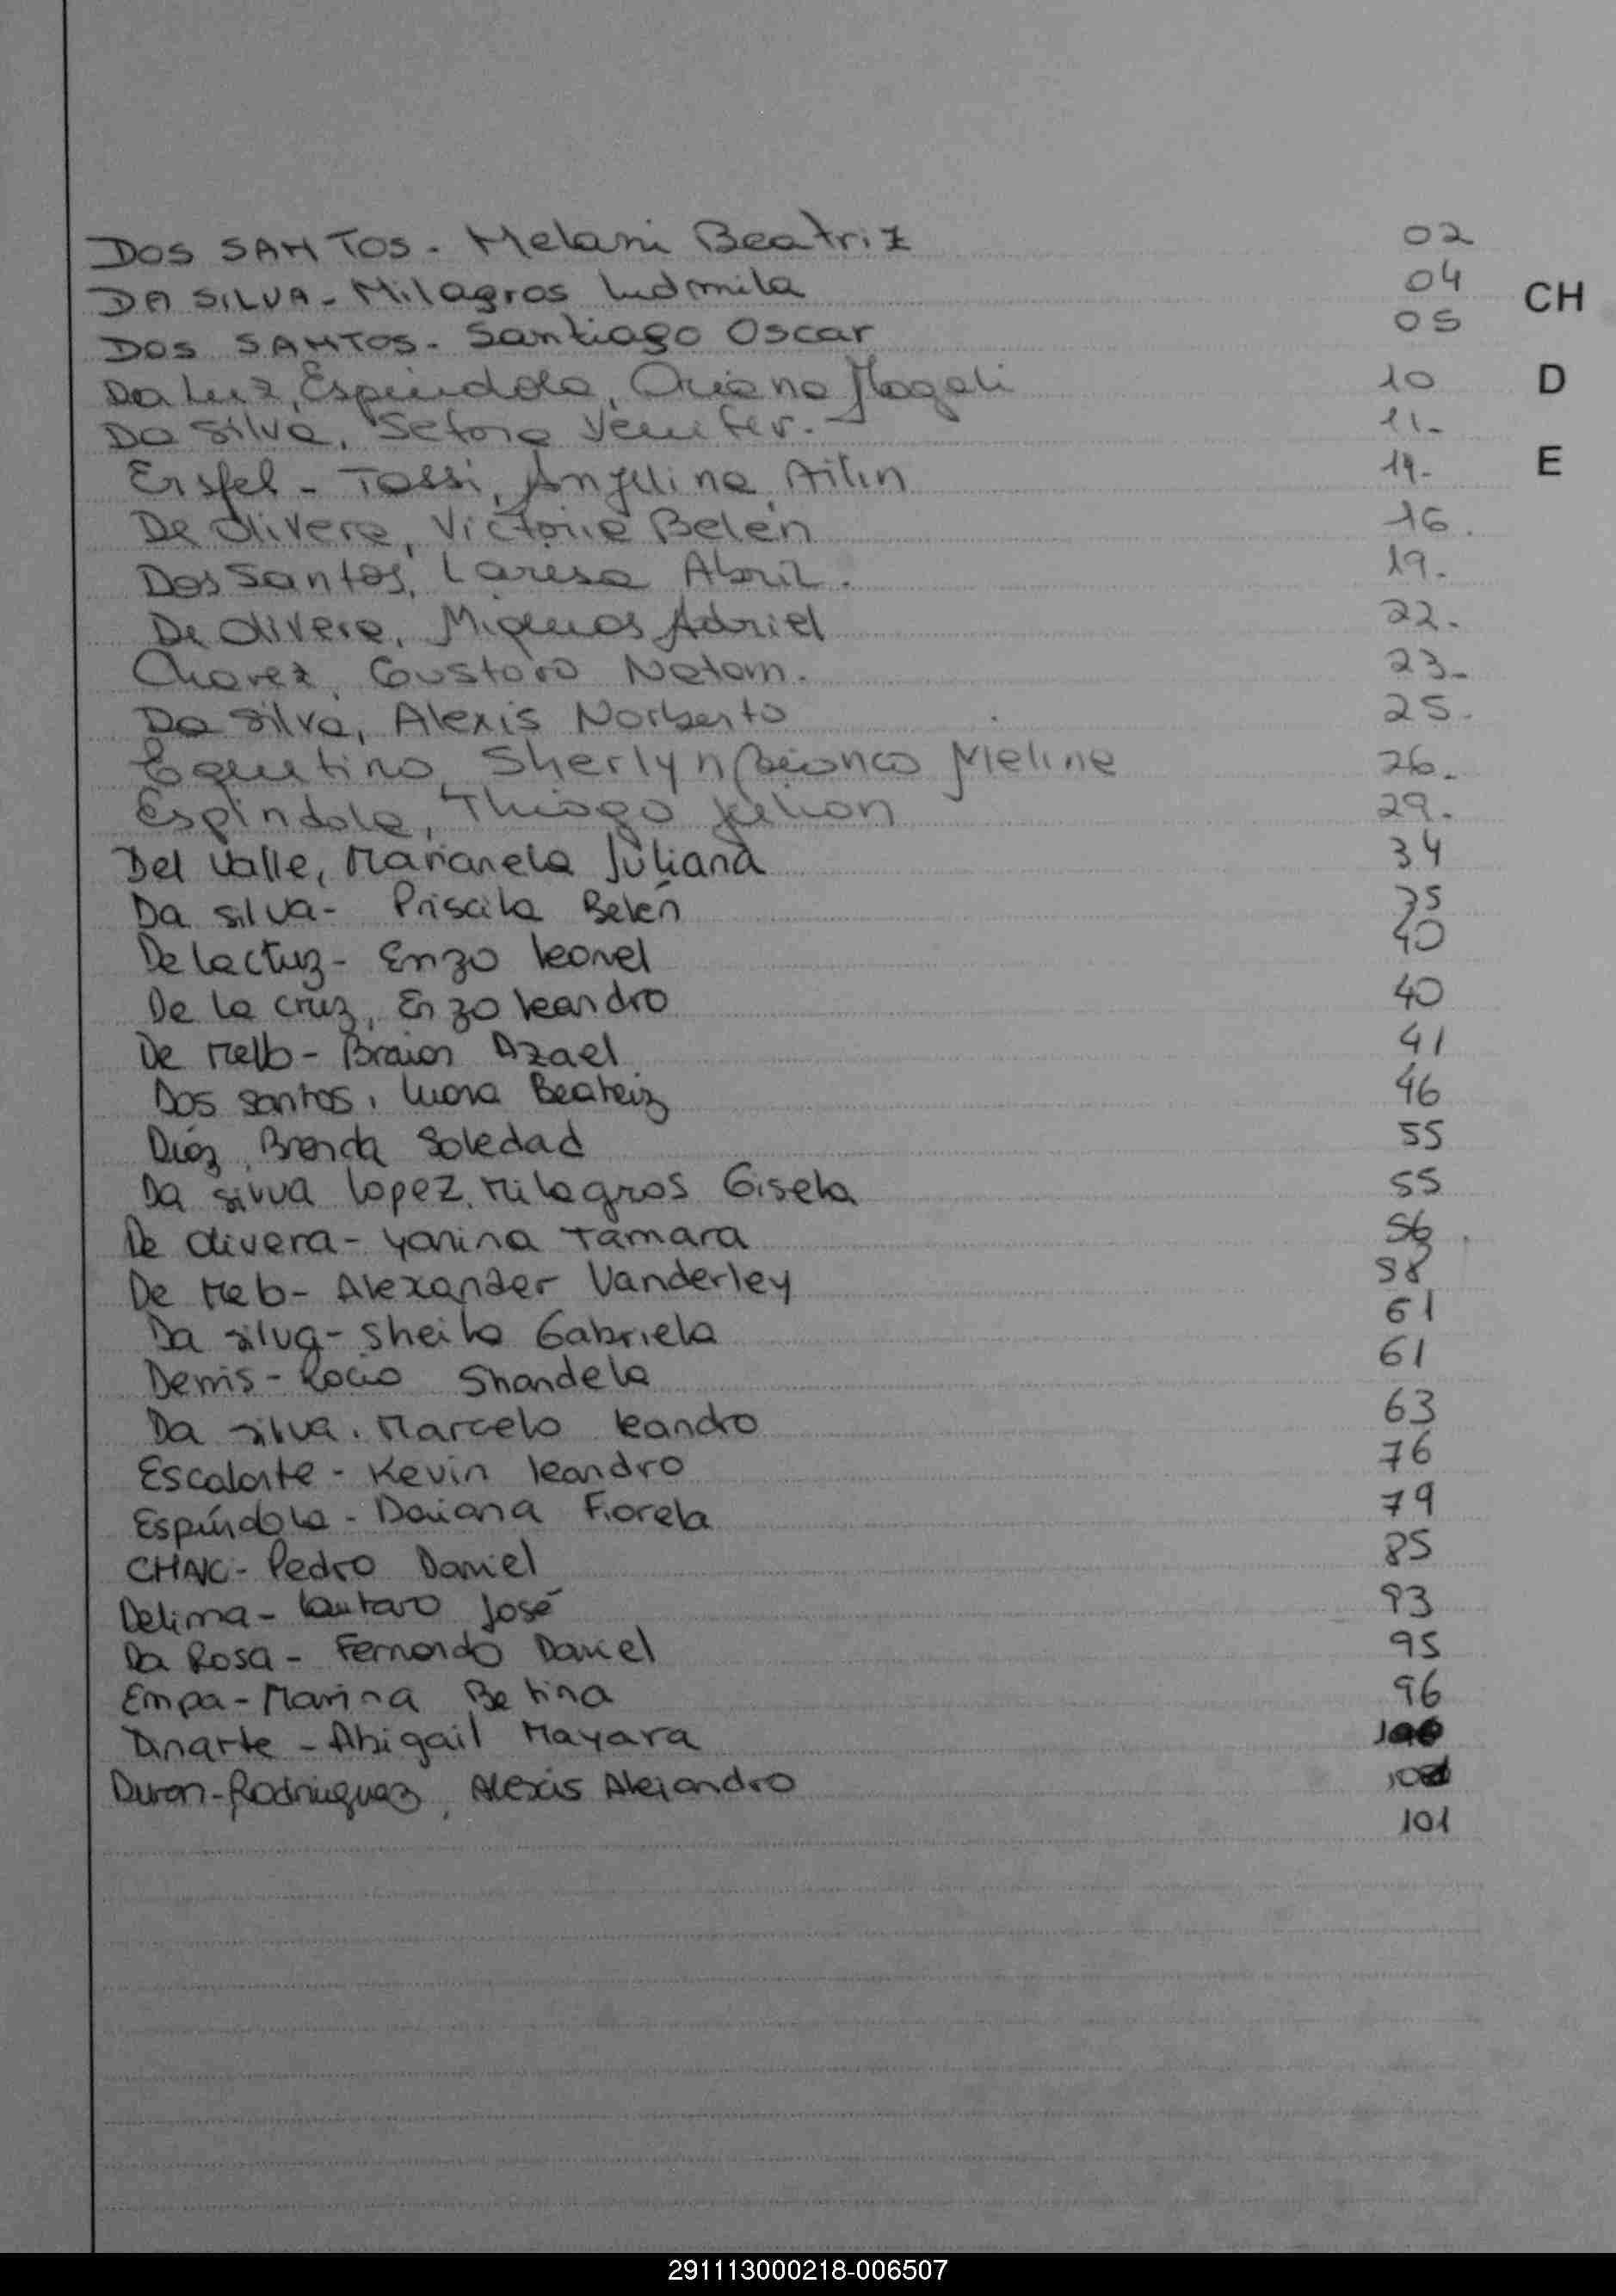 DOS SANTOS - Melani Beatriz 02
DA SILVA - Milagros Ludmila 04
CH
DOS SANTOS - Santiago Oscar 05
Da Luz, Espindola, Oriana Magali 10
D
Da Silva, Yenifer. 11-
Angelina Ailin 14-
E
De Olivera, Victoria Belén 16.
Dos Santos, Laresa Abril. 19.
De Olivera, Miqueas Adriel 22.
Chavez, Gustavo Natam. 23-
Da Silva, Alexis Norberto 25.
Sherlyn Bianca Meline 26.
Espindola, Thiago Julian 29.
Del Valle, Marianela Juliana 34
Da Silva - Priscila Belén 35
De la Cruz - Enzo Leonel 40
De la Cruz, Enzo Leandro 40
De Mello - Braian Azael 41
Dos Santos, Luana Beatriz 46
Diaz, Brenda Soledad 55
Da Silva Lopez, Milagros Gisela 55
De Olivera - Yanina Tamara 56
De Melo - Alexander Vanderley 58
Da Silva - Sheila Gabriela 61
Denis - Rocio Shandela 61
Da Silva, Marcelo Leandro 63
Escalante - Kevin Leandro 76
Espíndola - Daiana Fiorela 79
Pedro Daniel 85
Delima - Lautaro José 93
Da Rosa - Fernando Daniel 95
Empa - Marina Betina 96
Abigail Mayara
Duran - Rodriguez, Alexis Alejandro
101
291113000218-006507